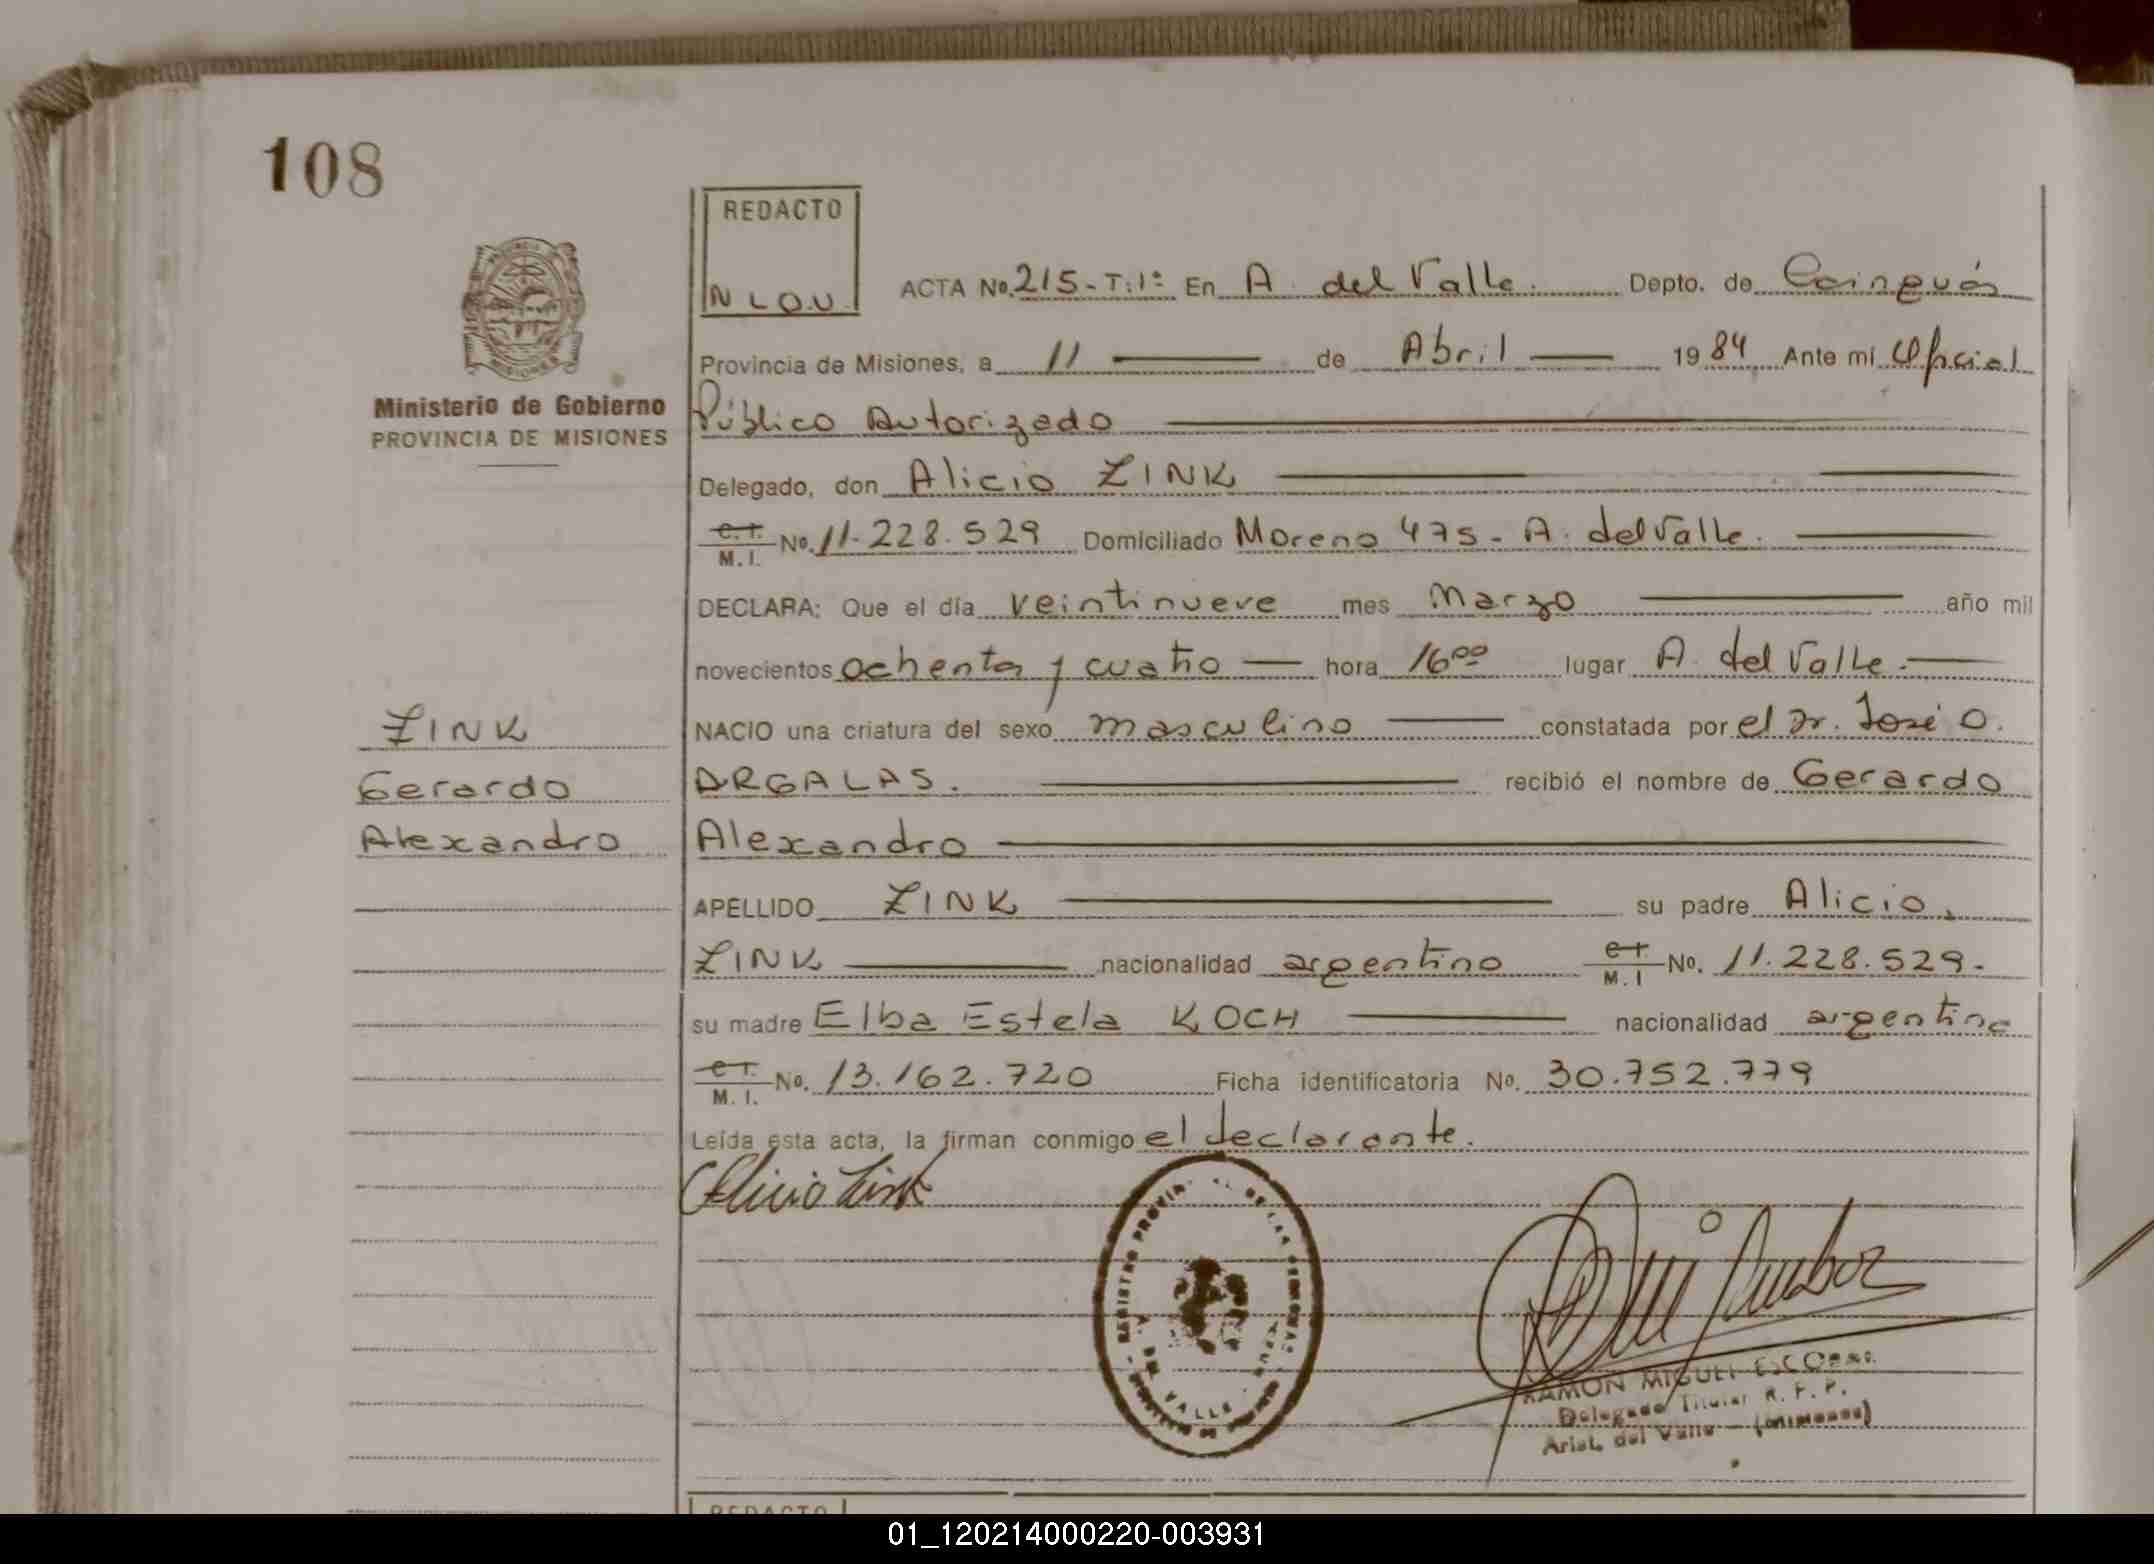 108
Ministerio de Gobierno
PROVINCIA DE MISIONES
ZINK
Gerardo
Alexandro
REDACTO
N L O.U.
ACTA No. 215-T:1º En A. del Valle. Depto. de Cainguás
Provincia de Misiones, a 11 de Abril 1984 Ante mí Oficial
Público Autorizado
Delegado, don Alicio ZINK
C.I. M.I. No. 11.228.529 Domiciliado Moreno 475 - A. del Valle.
DECLARA: Que el día veintinueve mes Marzo año mil
novecientos ochenta y cuatro hora 16⁰⁰ lugar A. del Valle.
NACIO una criatura del sexo masculino constatada por el Dr. José O.
ARGALAS. recibió el nombre de Gerardo
Alexandro
APELLIDO ZINK su padre Alicio,
ZINK nacionalidad argentino C.I. M.I No. 11.228.529.
su madre Elba Estela KOCH nacionalidad argentina
C.I. M.I. No. 13.162.720 Ficha identificatoria No. 30.752.779
Leída esta acta, la firman conmigo el declarante.
Alicio Zink
REGISTRO PROVIN AL DE LAS PERSONAS
DEL VALLE
RAMON MIGUEL ESCOBAR
Delegado Titular R. P. P.
Arist. del Valle - (Misiones)
REDACTO
01_120214000220-003931